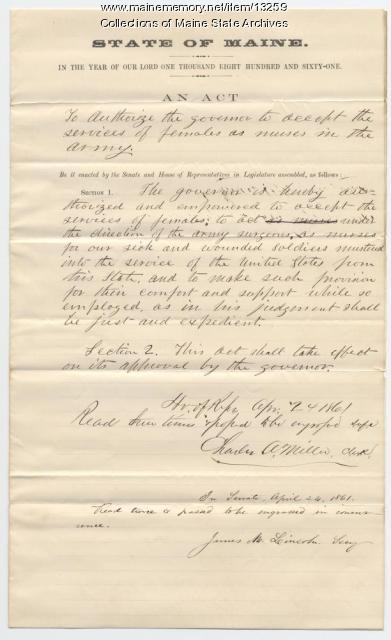 www.mainememory.net/item/13259
Collections of Maine State Archives
STATE OF MAINE.
IN THE YEAR OF OUR LORD ONE THOUSAND EIGHT HUNDRED AND SIXTY-ONE.
AN ACT
To Authorize the governor to accept the
services of females as nurses in the
army.
Be it enacted by the Senate and House of Representatives in Legislature assembled, as follows:
SECTION 1. The governor is hereby au-
thorized and empowered to accept the
services of females, to act as nurses under
the direction of the army surgeons, as nurses
for our sick and wounded soldiers mustered
into the service of the United States from
this State, and to make such provision
for their comfort and support while so
employed, as in his judgement shall
be just and expedient.
Section 2. This act shall take effect
on its approval by the governor.
Ho. of Reps, Apr. 24 1861
Read three times & passed to be engrossed
Charles A. Miller, clerk
In Senate, April 24, 1861.
Read twice & passed to be engrossed in concur-
rence.
James M. Lincoln Secy